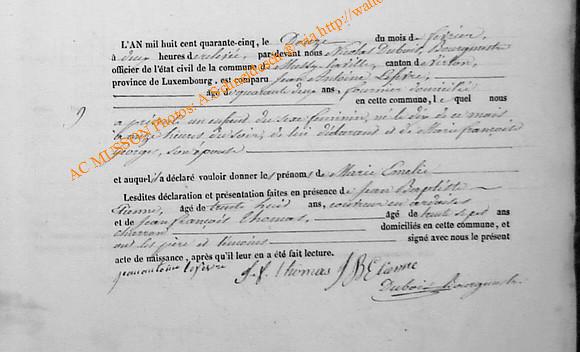 L'AN mil huit cent quarante-cinq, le Douze du mois de février,
à deux heures de relevée, par-devant nous Nicolas Dubois, Bourgmestre
officier de l'état civil de la commune de Mussy-la-ville canton de Virton,
province de Luxembourg, est comparu Jean Antoine Lefèvre,
âgé de quarante deux ans, domicilié
en cette commune, le quel nous
a présenté un enfant du sexe féminin, né le dix de ce mois
à onze heures du soir, de lui déclarant et de Marie françoise
georges, son épouse
et auquel il a déclaré vouloir donner les prénoms de Marie Emelie
Lesdites déclaration et présentation faites en présence de Jean Baptiste
Etienne, âgé de trente huit ans, couvreur en ardoises
et de Jean françois thomas, âgé de trente sept ans
charron domiciliés en cette commune, et
ont les père et témoins signé avec nous le présent
acte de naissance, après qu'il leur en a été fait lecture.
jean antoine lefevre J. f. thomas J B Etienne
Dubois Bourgmestre
AC MUSSON Photos: A.Schmidt ℗ via http://